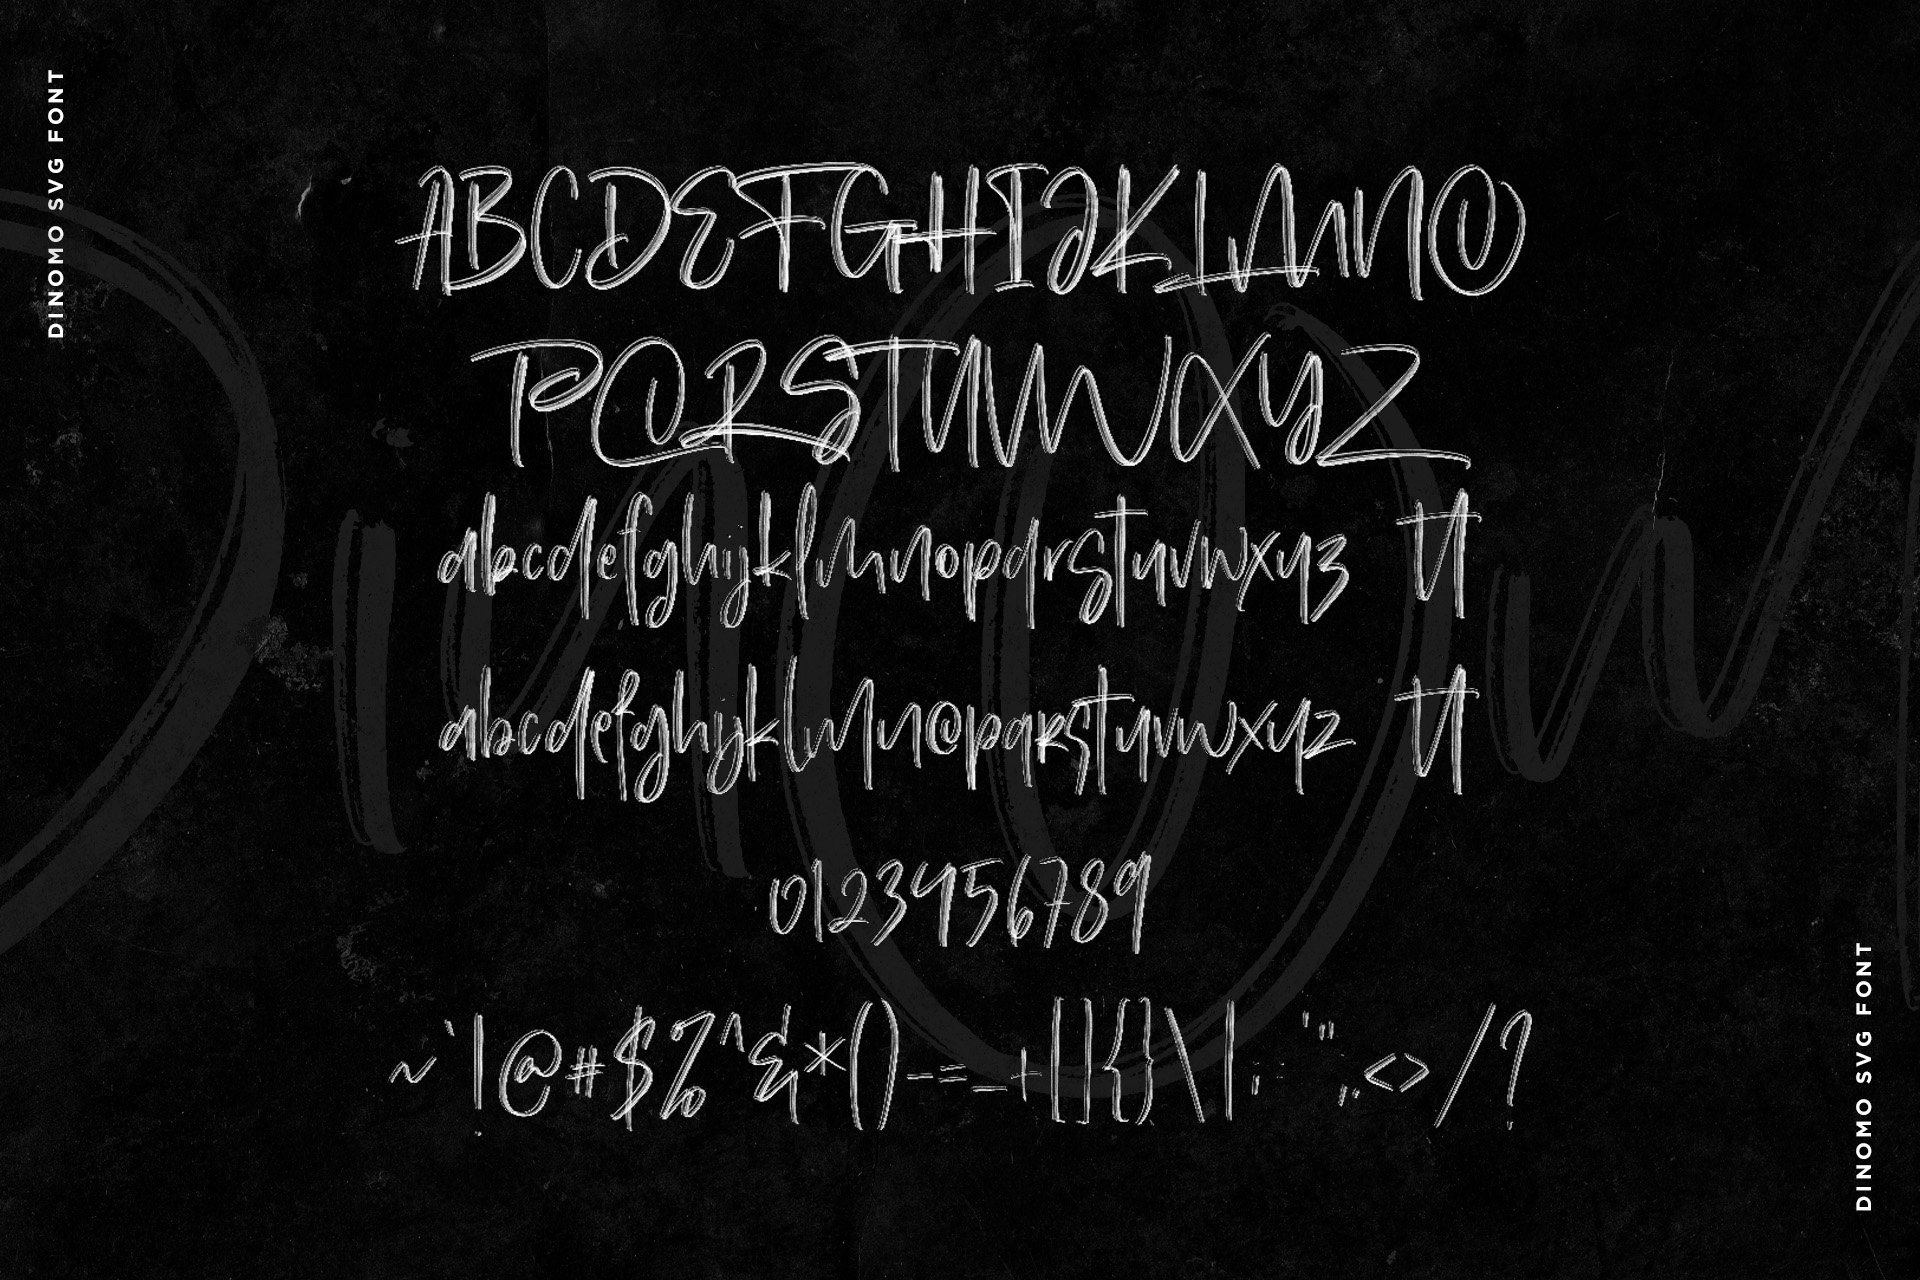 DINOMO SVG FONT
ABCDEFGHIJKLMNO
PQRSTUVWXYZ
abcdefghijklmnopqrstuvwxyz tt
abcdefghijklmnopqrstuvwxyz tt
0123456789
~`!@#$%^&*()-=_+[]{}\|;:'",.<>/?
DINOMO SVG FONT